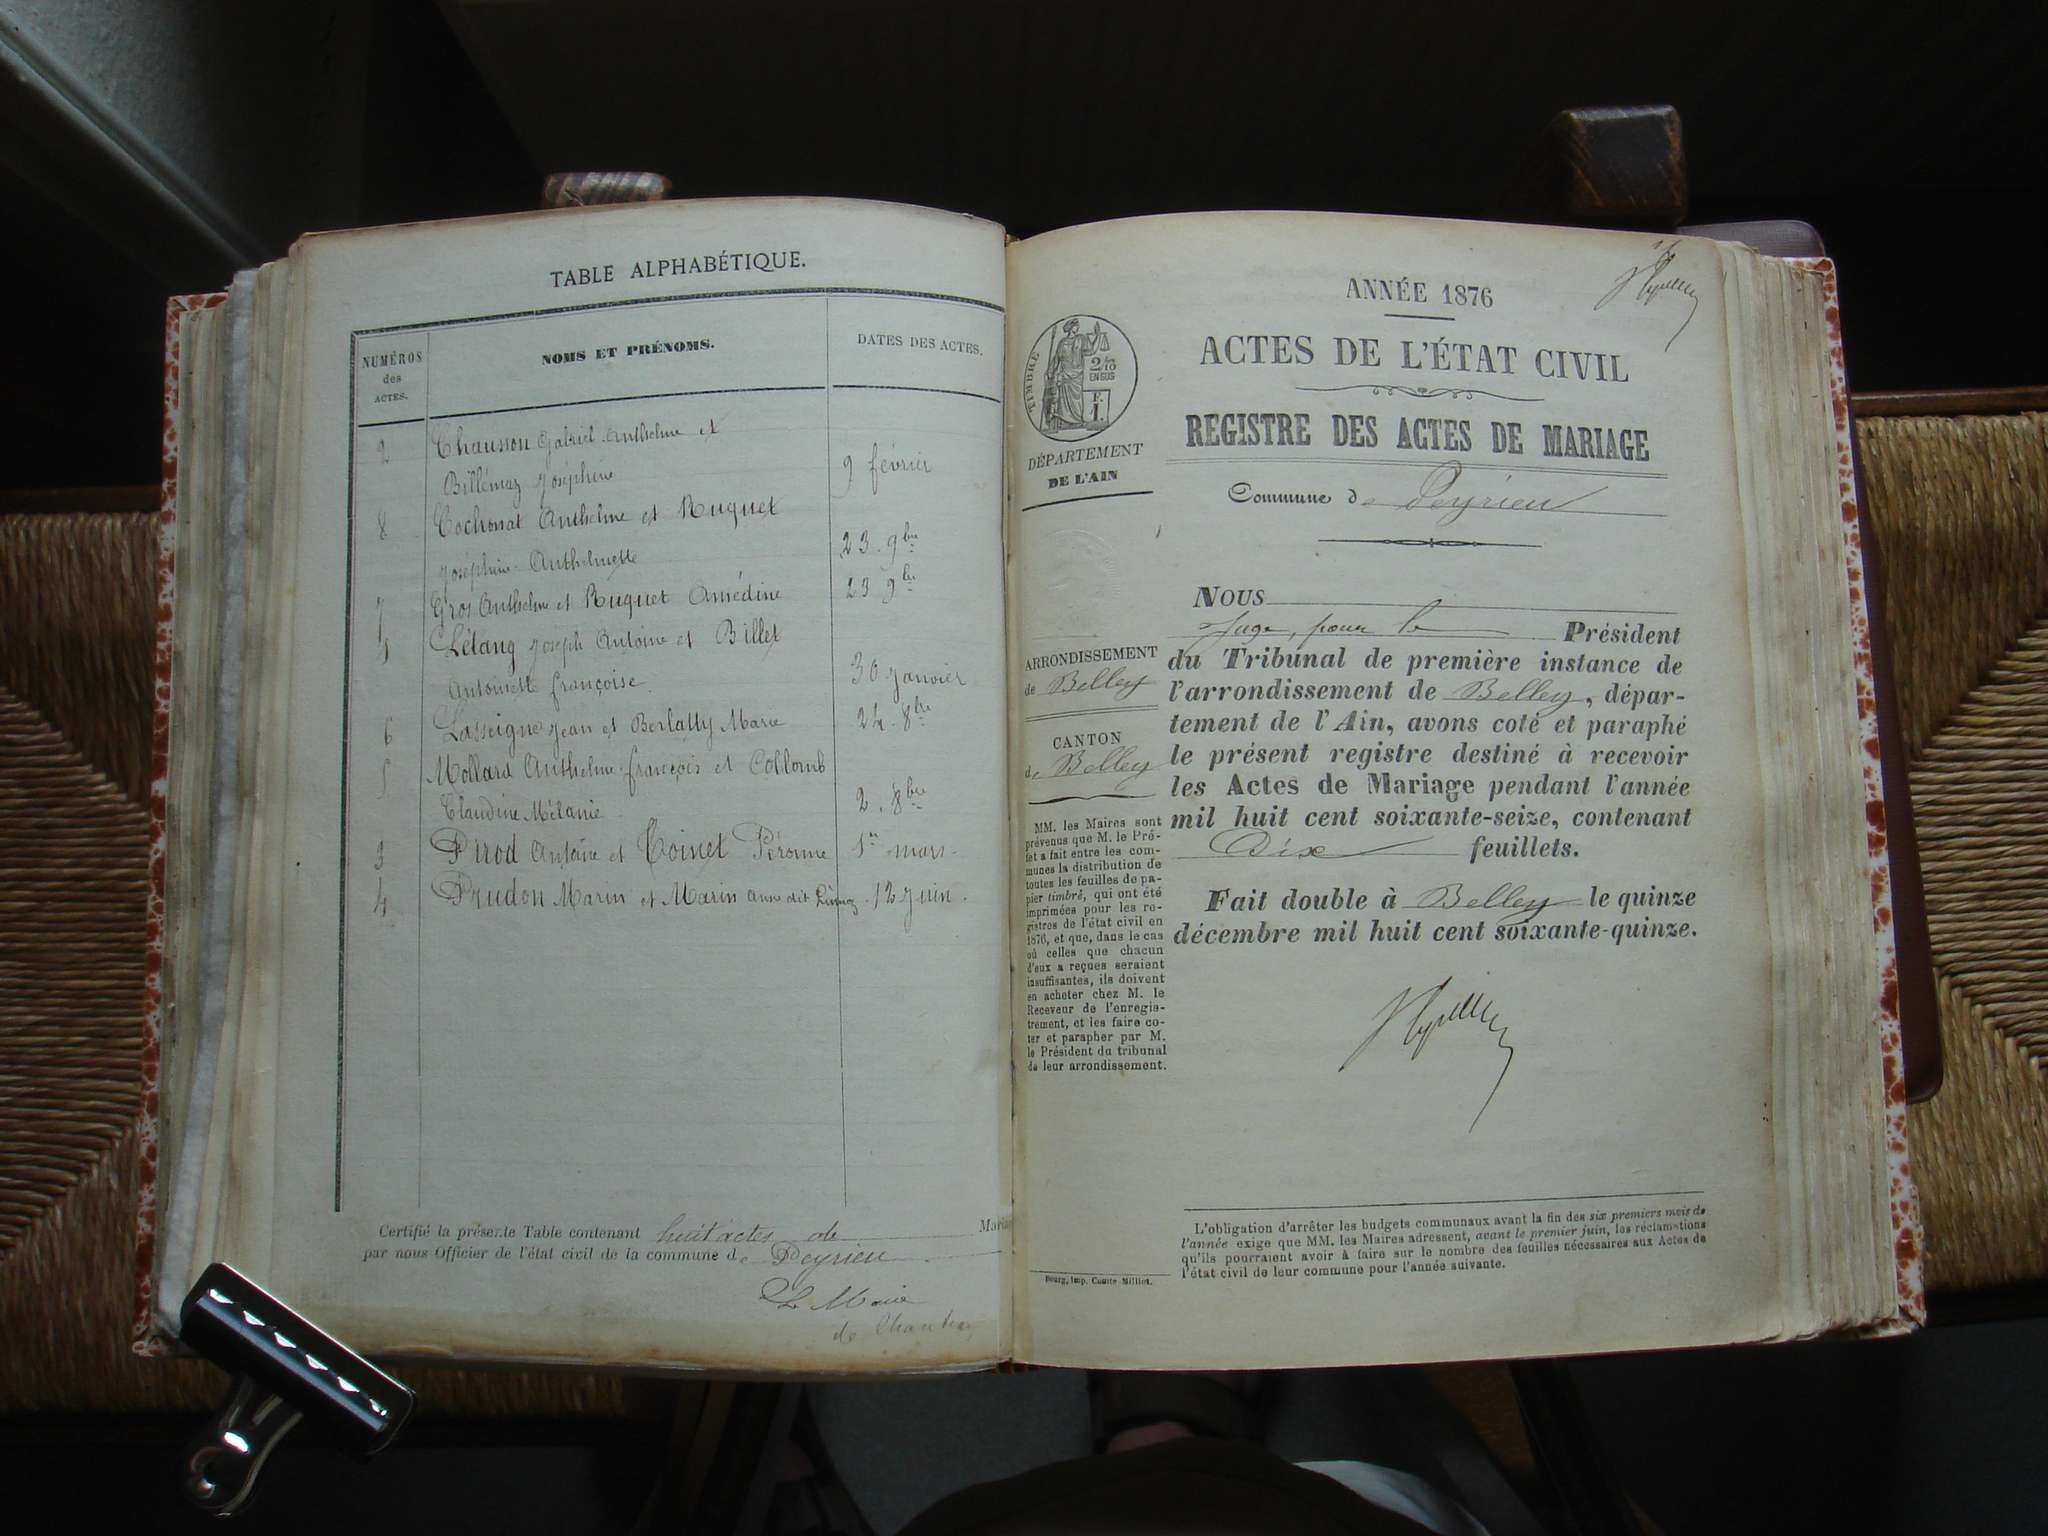 TABLE ALPHABÉTIQUE.
NUMÉROS des ACTES.
NOMS ET PRÉNOMS.
DATES DES ACTES.
2 Chausson Gabriel Anthelme et
Billémaz Joséphine 9 février
8 Cochonat Anthelme et Ruguet
Joséphine Anthelmette 23 9bre
7 Gros Anthelme et Ruguet Amédine 23 9bre
1 Létang Joseph Antoine et Billet
Antoinette françoise 30 janvier
6 Lasseigne Jean et Berlatty Marie 24 8bre
5 Mollard Anthelme françois et Collomb
Claudine Mélanie 2. 8bre
3 Pirod Antoine et Coinet Péronne 1er mars
4 Prudon Marin et Marin Anne dit 12 juin.
Certifié la présente Table contenant huit actes de Maria
par nous Officier de l'état civil de la commune de Peyrieu
Le Maire
ANNÉE 1876
ACTES DE L'ÉTAT CIVIL
REGISTRE DES ACTES DE MARIAGE
Commune de Peyrieu
TIMBRE
2/10
EN SUS
F.
1.
DÉPARTEMENT
DE L'AIN
ARRONDISSEMENT
de Belley
CANTON
de Belley
MM. les Maires sont
prévenus que M. le Pré-
fet a fait entre les com-
munes la distribution de
toutes les feuilles de pa-
pier timbré, qui ont été
imprimées pour les re-
gistres de l'état civil en
1876, et que, dans le cas
où celles que chacun
d'eux a reçues seraient
insuffisantes, ils doivent
en acheter chez M. le
Receveur de l'enregis-
trement, et les faire co-
ter et parapher par M.
le Président du tribunal
de leur arrondissement.
Bourg, imp. Comte-Milliet.
NOUS
Juge, pour le Président
du Tribunal de première instance de
l'arrondissement de Belley, dépar-
tement de l'Ain, avons coté et paraphé
le présent registre destiné à recevoir
les Actes de Mariage pendant l'année
mil huit cent soixante-seize, contenant
Dix feuillets.
Fait double à Belley le quinze
décembre mil huit cent soixante-quinze.
L'obligation d'arrêter les budgets communaux avant la fin des six premiers mois de
l'année exige que MM. les Maires adressent, avant le premier juin, les réclamations
qu'ils pourraient avoir à faire sur le nombre des feuilles nécessaires aux Actes de
l'état civil de leur commune pour l'année suivante.